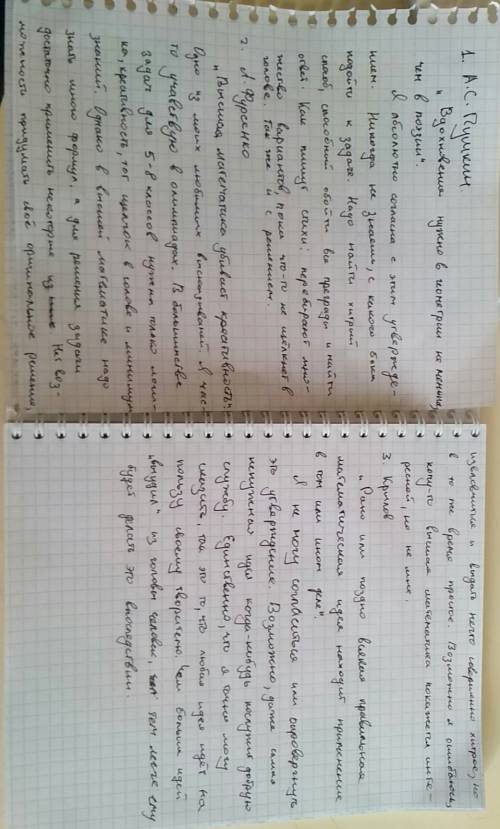 1. А.С. Пушкин.
"Вдохновение нужно в геометрии не меньше,
чем в поэзии".
Я абсолютно согласна с этим утвержде-
нием. Никогда не знаешь, с какого бока
подойти к задаче. Надо найти хитрый
способ, способный обойти все преграды и найти
ответ. Как пишут стихи: перебирают мно-
жество вариантов, пока что-то не щёлкнет в
голове. Так же и с решением.
2. А. Фурсенко
"Высшая математика убивает креативность".
Одно из моих любимых высказываний. Я час-
то участвую в олимпиадах. В большинстве
задач для 5-8 классов нужна только логи-
ка, креативность, тот щелчок в голове и минимум
знаний. Однако в высшей математике надо
знать много формул, а для решения задачи
достаточно применить некоторые из них. Нет воз-
можности придумать своё оригинальное решение,
извернуться и выдать нечто совершенно хитрое, но
в то же время простое. Возможно я ошибаюсь,
кому-то высшая математика покажется инте-
ресной, но не мне.
3. Крылов
"Рано или поздно всякая правильная
математическая идея находит применение
в том или ином деле".
Я не могу согласиться или опровергнуть
это утверждение. Возможно, даже самая
ненужная идея когда-нибудь послужит добрую
службу. Единственно, что я точно могу
сказать, так это то, что любая идея идёт на
пользу своему творителю. Чем больше идей
"выудил" из головы человек, тем легче ему
будет делать это впоследствии.